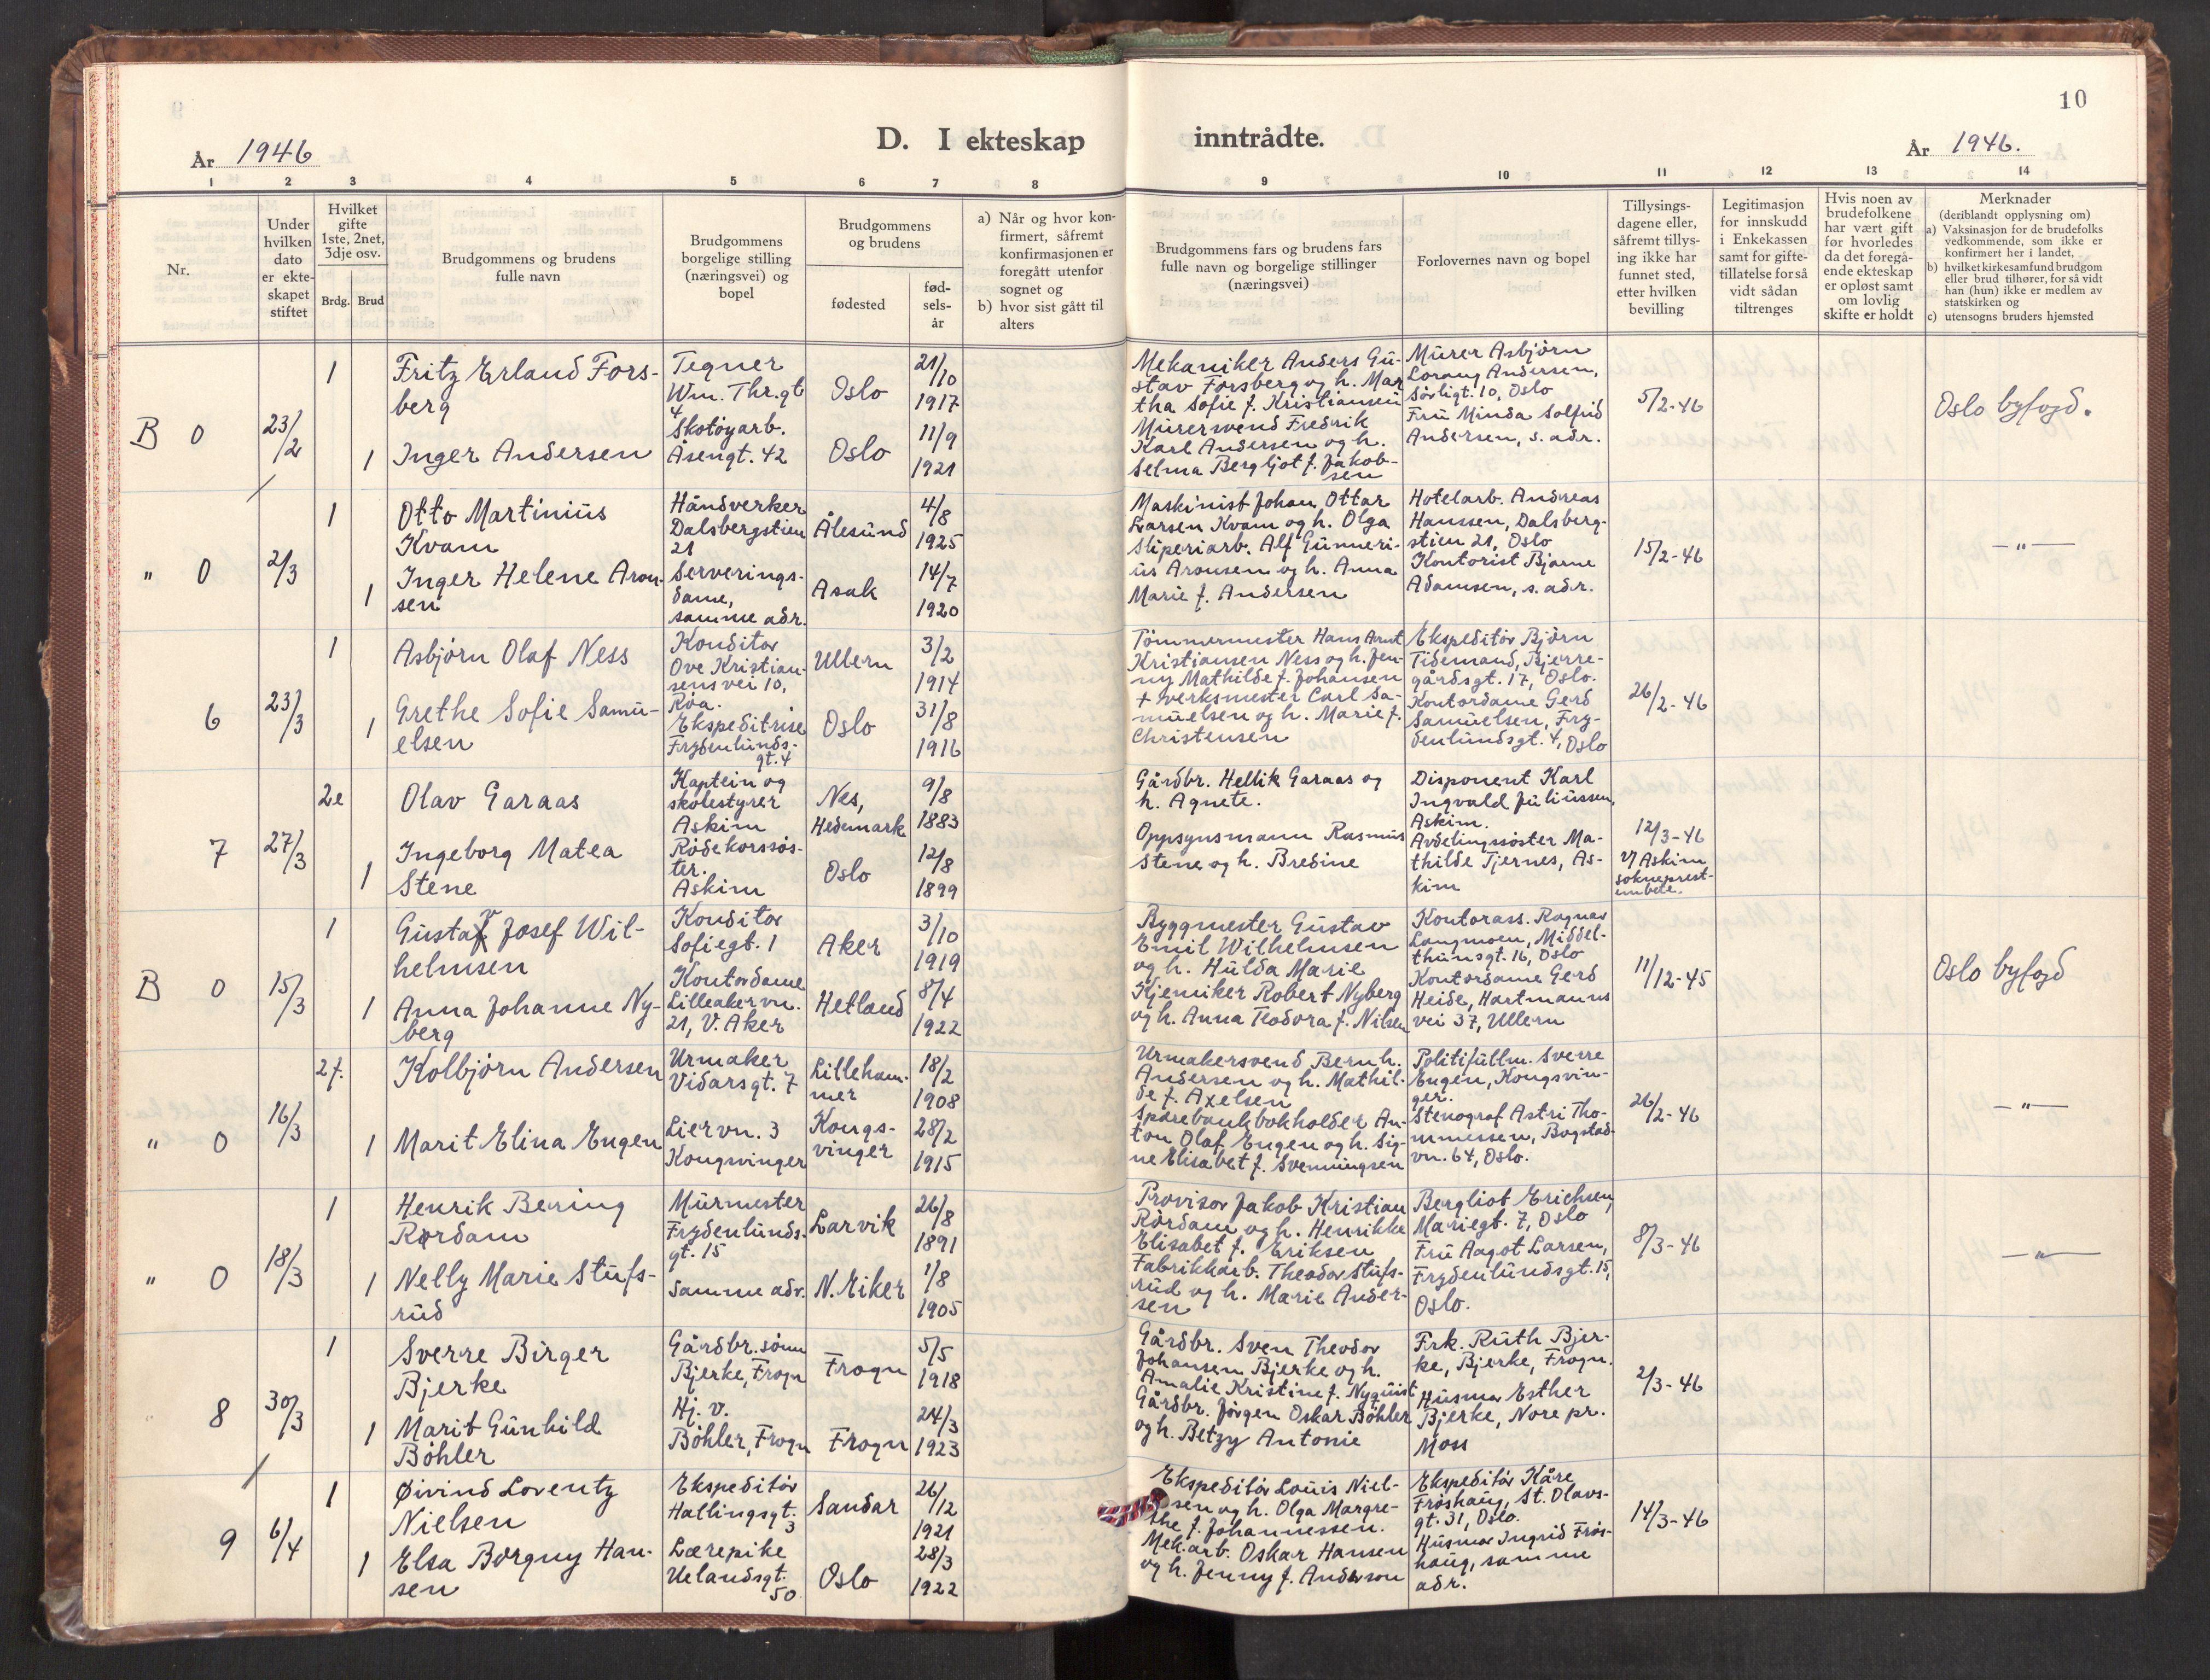 10
År 1946
D. I ekteskap inntrådte.
År 1946.
1 2 3 4 5 6 7 8 9 10 11 12 13 14
Nr.
Under
hvilken
dato
er ekte-
skapet
stiftet
Hvilket
gifte
1ste, 2net,
3dje osv.
Brdg. Brud
Brudgommens og brudens
fulle navn
Brudgommens
borgelige stilling
(næringsvei) og
bopel
Brudgommens
og brudens
fødested
fød-
sels-
år
a) Når og hvor kon-
firmert, såfremt
konfirmasjonen er
foregått utenfor
sognet og
b) hvor sist gått til
alters
Brudgommens fars og brudens fars
fulle navn og borgelige stillinger
(næringsvei)
Forlovernes navn og bopel
Tillysings-
dagene eller,
såfremt tillys-
ing ikke har
funnet sted,
etter hvilken
bevilling
Legitimasjon
for innskudd
i Enkekassen
samt for gifte-
tillatelse for så
vidt sådan
tiltrenges
Hvis noen av
brudefolkene
har vært gift
før hvorledes
da det foregå-
ende ekteskap
er opløst samt
om lovlig
skifte er holdt
Merknader
(deriblandt opplysning om)
a) Vaksinasjon for de brudefolks
vedkommende, som ikke er
konfirmert her i landet,
b) hvilket kirkesamfund brudgom
eller brud tilhører, for så vidt
han (hun) ikke er medlem av
statskirken og
c) utensogns bruders hjemsted
B 0
23/2
1
Fritz Erland Fors-
berg
Tegner
Wm. Thr.gt
4
Oslo
21/10
1917
1
Inger Andersen
Skotøyarb.
Åsengt. 42
Oslo
11/9
1921
Mekaniker Anders Gu-
stav Forsberg og h. Mar
tha Sofie f. Kristiansen
Murersvend Fredrik
Karl Andersen og h.
Selma Bergljot f. Jakob-
sen
Murer Asbjørn
Lorang Andersen,
Sørligt. 10, Oslo
Fru Minda Solfrid
Andersen, s. adr.
5/2-46
Oslo byfogd.
" 0
2/3
1
Otto Martinius
Kvam
Håndverker
Dalsbergstien
21
Ålesund
4/8
1925
1
Inger Helene Aron-
sen
Serverings-
dame,
samme adr.
Asak
14/7
1920
Maskinist Johan Ottar
Larsen Kvam og h. Olga
Sliperiarb. Alf Gunneri-
us Aronsen og h. Anna
Marie f. Andersen
Hotelarb. Andreas
Hanssen, Dalsberg-
stien 21, Oslo
Kontorist Bjarne
Adamsen, s. adr.
15/2-46
— " —
6
23/3
1
Asbjørn Olaf Ness
Konditor
Ove Kristian-
sens vei 10,
Røa.
Ullern
3/2
1914
1
Grethe Sofie Samu-
elsen
Ekspeditrise
Frydenlunds-
gt. 4
Oslo
31/8
1916
Tømmermester Hans Arnt
Kristiansen Ness og h. Jen-
ny Mathilde f. Johansen
+ Verksmester Carl Sa-
muelsen og h. Marie f.
Christensen
Ekspeditør Bjørn
Tidemand, Bjerre-
gårdsgt. 17, Oslo.
Kontordame Gerd
Samuelsen, Fry-
denlundsgt. 4, Oslo
26/2-46
7
27/3
2e
Olav Garaas
Kaptein og
skolestyrer
Askim
Nes,
Hedemark
9/8
1883
1
Ingeborg Matea
Stene
Rødekorssøs-
ter.
Askim
Oslo
12/8
1899
Gårdbr. Hellik Garaas og
h. Agnete.
Oppsynsmann Rasmus
Stene og h. Bredine
Disponent Karl
Ingvald Juliussen,
Askim.
Avdelingssøster Ma-
thilde Tjernes, As-
kim
12/3-46
v/ Askim
sokneprest-
embete.
B 0
15/3
1
Gustav Josef Wil-
helmsen
Konditor
Sofiegt. 1
Aker
3/10
1919
1
Anna Johanne Ny-
berg
Kontordame
Lilleakervn.
21, V. Aker
Hetland
8/4
1922
Byggmester Gustav
Emil Wilhelmsen
og h. Hulda Marie
Kjemiker Robert Nyberg
og h. Anna Teodora f. Nilsen
Kontorass. Ragnar
Langmoen, Middel-
thunsgt. 16, Oslo
Kontordame Gerd
Heide, Hartmanns
vei 37, Ullern
11/12-45
Oslo byfogd
" 0
16/3
2f.
Kolbjørn Andersen
Urmaker
Vidarsgt. 7
Lilleham-
mer
18/2
1908
1
Marit Elina Engen
Liervn. 3
Kongsvinger
Kongs-
vinger
28/2
1915
Urmakersvend Bernh.
Andersen og h. Mathil-
de f. Axelsen
Sparebankbokholder An-
ton Olaf Engen og h. Sig-
ne Elisabet f. Svenningsen
Politifullm. Sverre
Engen, Kongsvin-
ger.
Stenograf Astri Tho-
mmessen, Bogstad-
vn. 64, Oslo.
26/2-46
— " —
" 0
18/3
1
Henrik Bering
Rørdam
Murmester
Frydenlunds-
gt. 15
Larvik
26/8
1891
1
Nelly Marie Stufs-
rud
Samme adr.
N. Eiker
1/8
1905
Provisor Jakob Kristian
Rørdam og h. Henrikke
Elisabet f. Eriksen
Fabrikkarb. Theodor Stufs-
rud og h. Marie Ander-
sen
Bergliot Erichsen,
Mariegt. 7, Oslo
Fru Aagot Larsen,
Frydenlundsgt. 15,
Oslo.
8/3-46
— " —
8
30/3
1
Sverre Birger
Bjerke
Gårdbr. sønn
Bjerke, Frogn
Frogn
5/5
1918
1
Marit Gunhild
Bøhler
Hj. v.
Bøhler, Frogn
Frogn
24/3
1923
Gårdbr. Sven Theodor
Johansen Bjerke og h.
Amalie Kristine f. Nyquist
Gårdbr. Jørgen Oskar Bøhler
og h. Betzy Antonie
Frk. Ruth Bjer-
ke, Bjerke, Frogn.
Husmor Esther
Bjerke, Nore pr.
Moss
2/3-46
9
6/4
1
Øivind Lorentz
Nielsen
Ekspeditør
Hallingsgt.
3
Sandar
26/12
1921
1
Elsa Borgny Han-
sen
Lærepike
Uelandsgt.
50
Oslo
28/3
1922
Ekspeditør Louis Niel-
sen og h. Olga Margre-
the f. Johannessen.
Mek.arb. Oskar Hansen
og h. Jenny f. Anderson
Ekspeditør Kåre
Frøshaug, St. Olavs-
gt. 31, Oslo.
Husmor Ingrid Frøs-
haug, samme
adr.
14/3-46